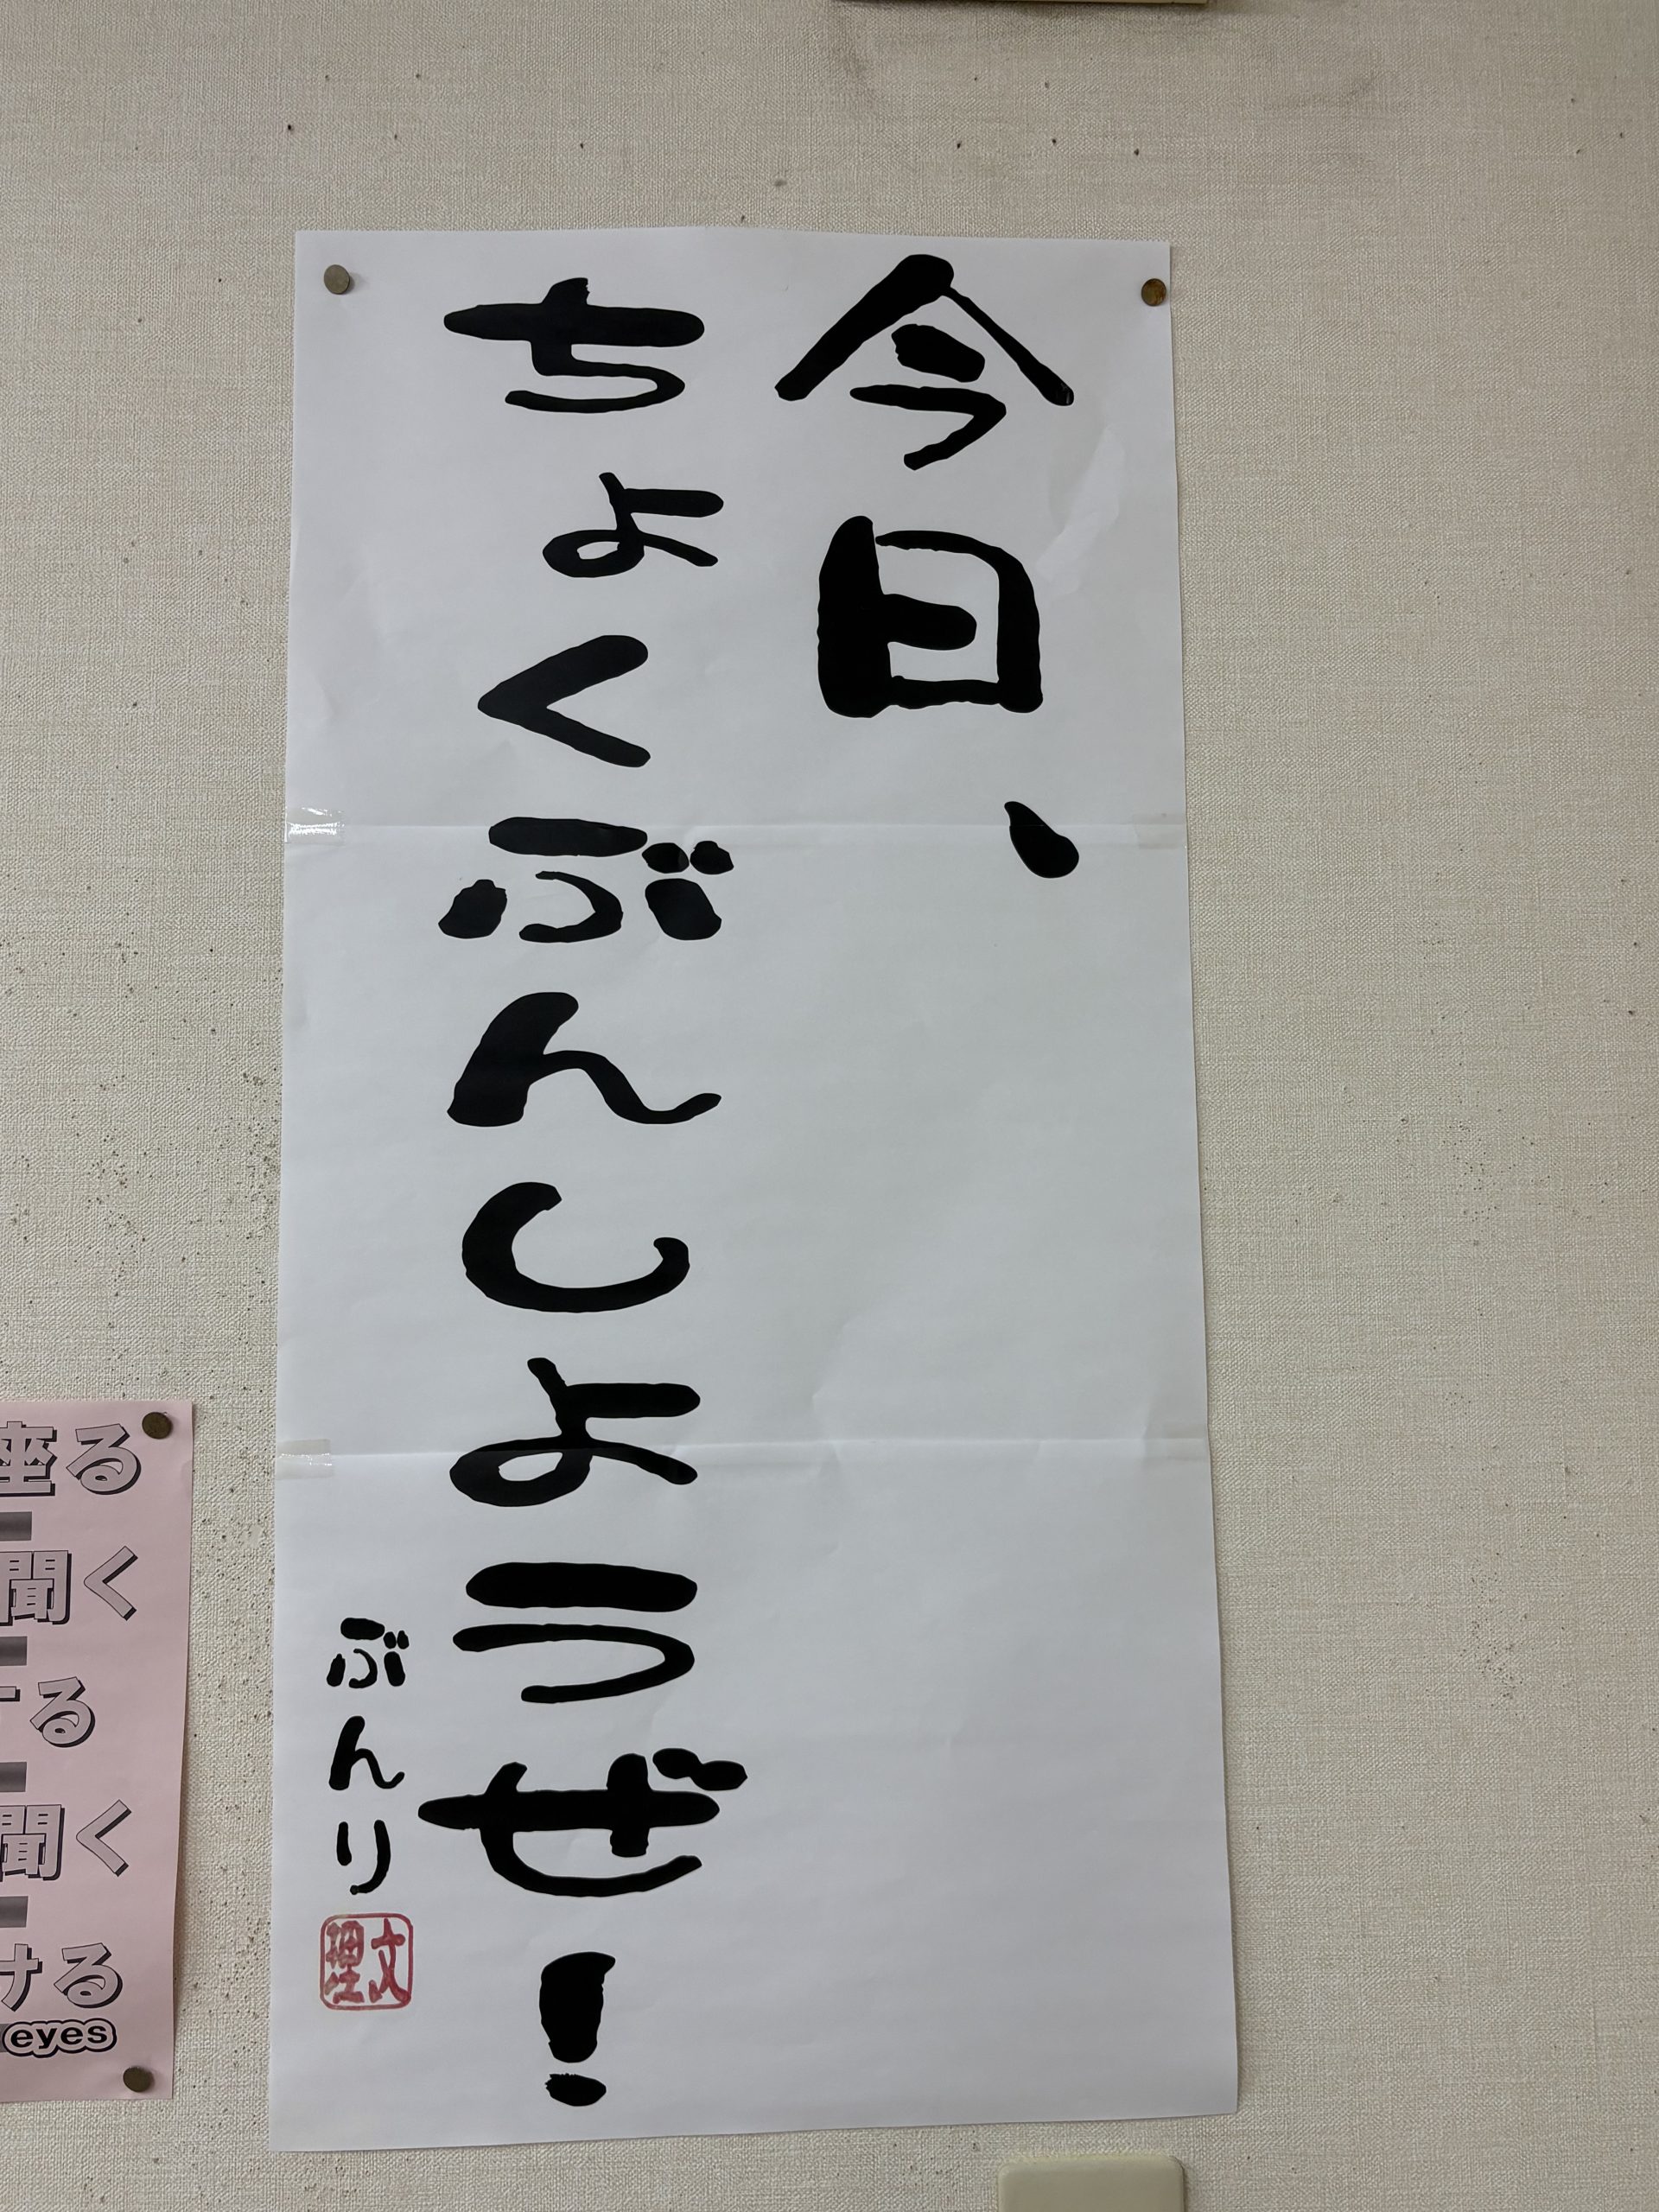 今日、
ちょくぶんしようぜ!
ぶんり
文理
座る
聞く
る
聞く
ける
eyes